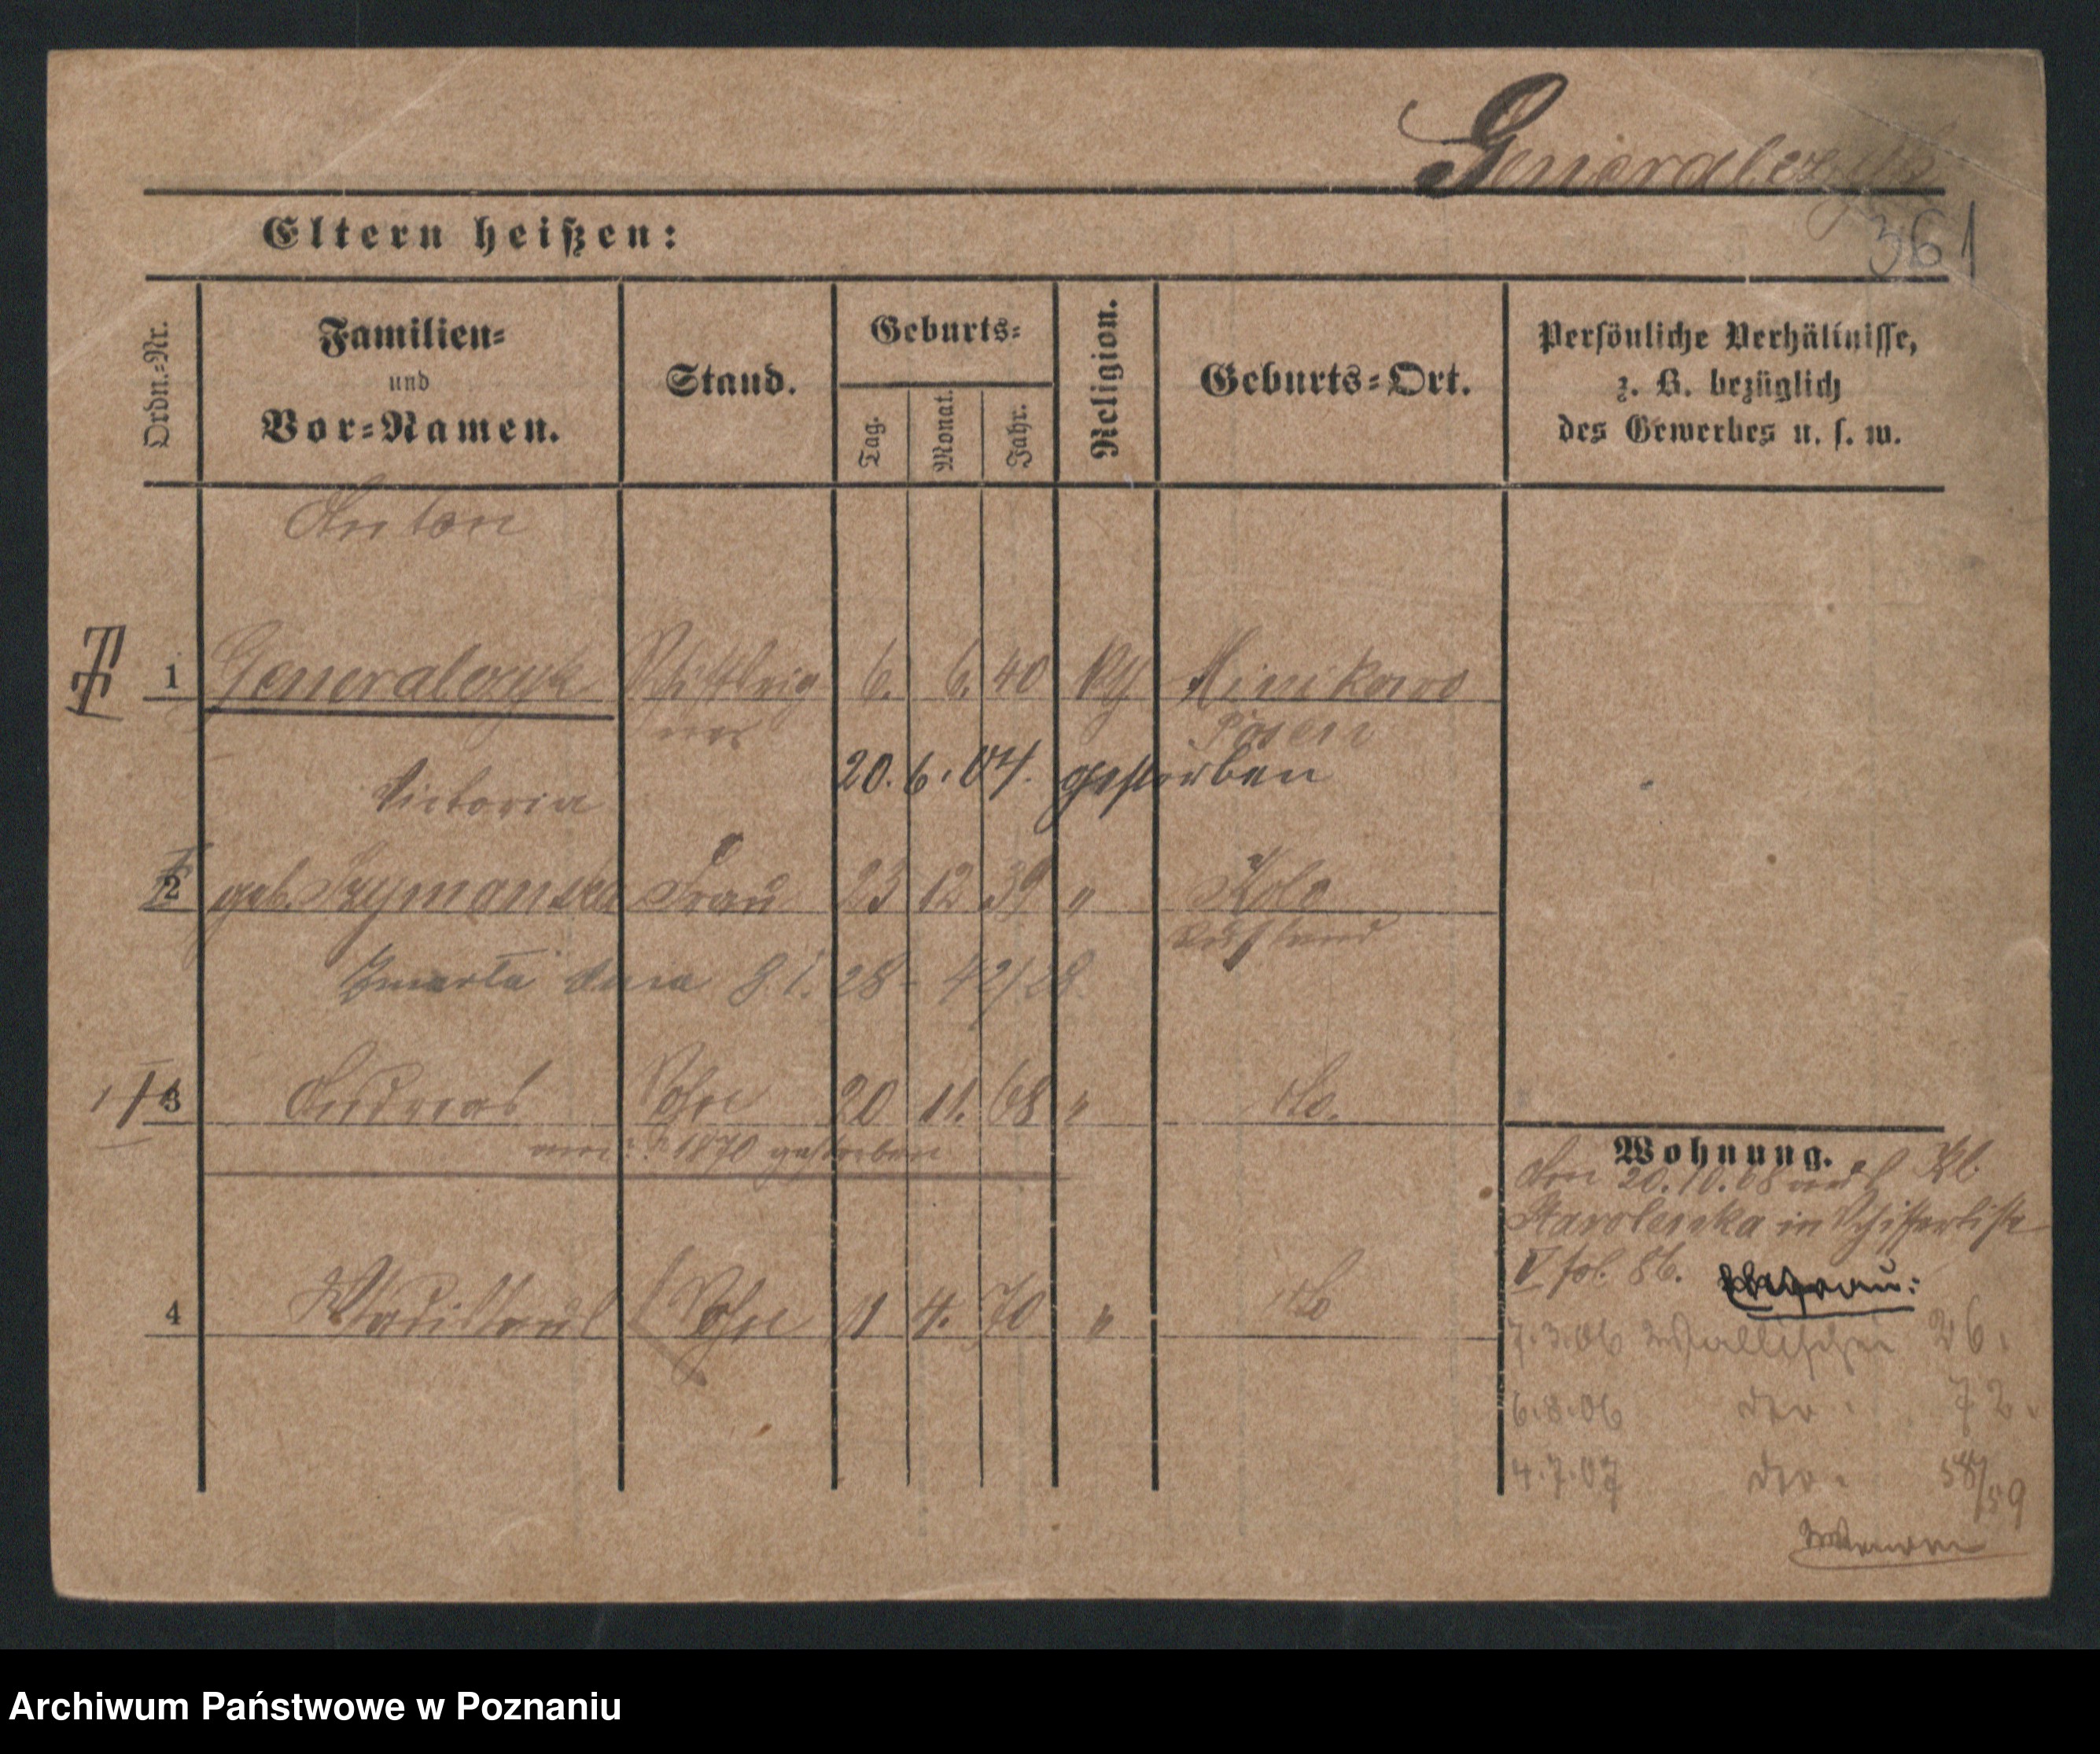 Generalczyk
361
Eltern heißen:
Ordn.-Nr.
Familien-
und
Vor-Namen.
Stand.
Geburts-
Tag.
Monat.
Jahr.
Religion.
Geburts-Ort.
Persönliche Verhältnisse,
z. B. bezüglich
des Gewerbes u. s. w.
Anton
1 Generalczyk 6. 6. 40 Minikowo
Posen
20. 6. 04. gestorben
Victoria
2 geb. Szymanska Frau 23 12 39 " Kolo
Rußland
Zmarła dnia 8 1. 28 - 42/28
3 Andreas Sohn 20 11. 68 " do.
1870 gestorben
4 Wladislaus Sohn 11 4. 70 " do
Wohnung.
20. 10. 08
Starolenka in Schifferliste
V fol. 86.
7. 3. 06 Wallischei 26.
6. 8. 06 dto. 72.
4. 7. 07 dto. 58/59
Archiwum Państwowe w Poznaniu